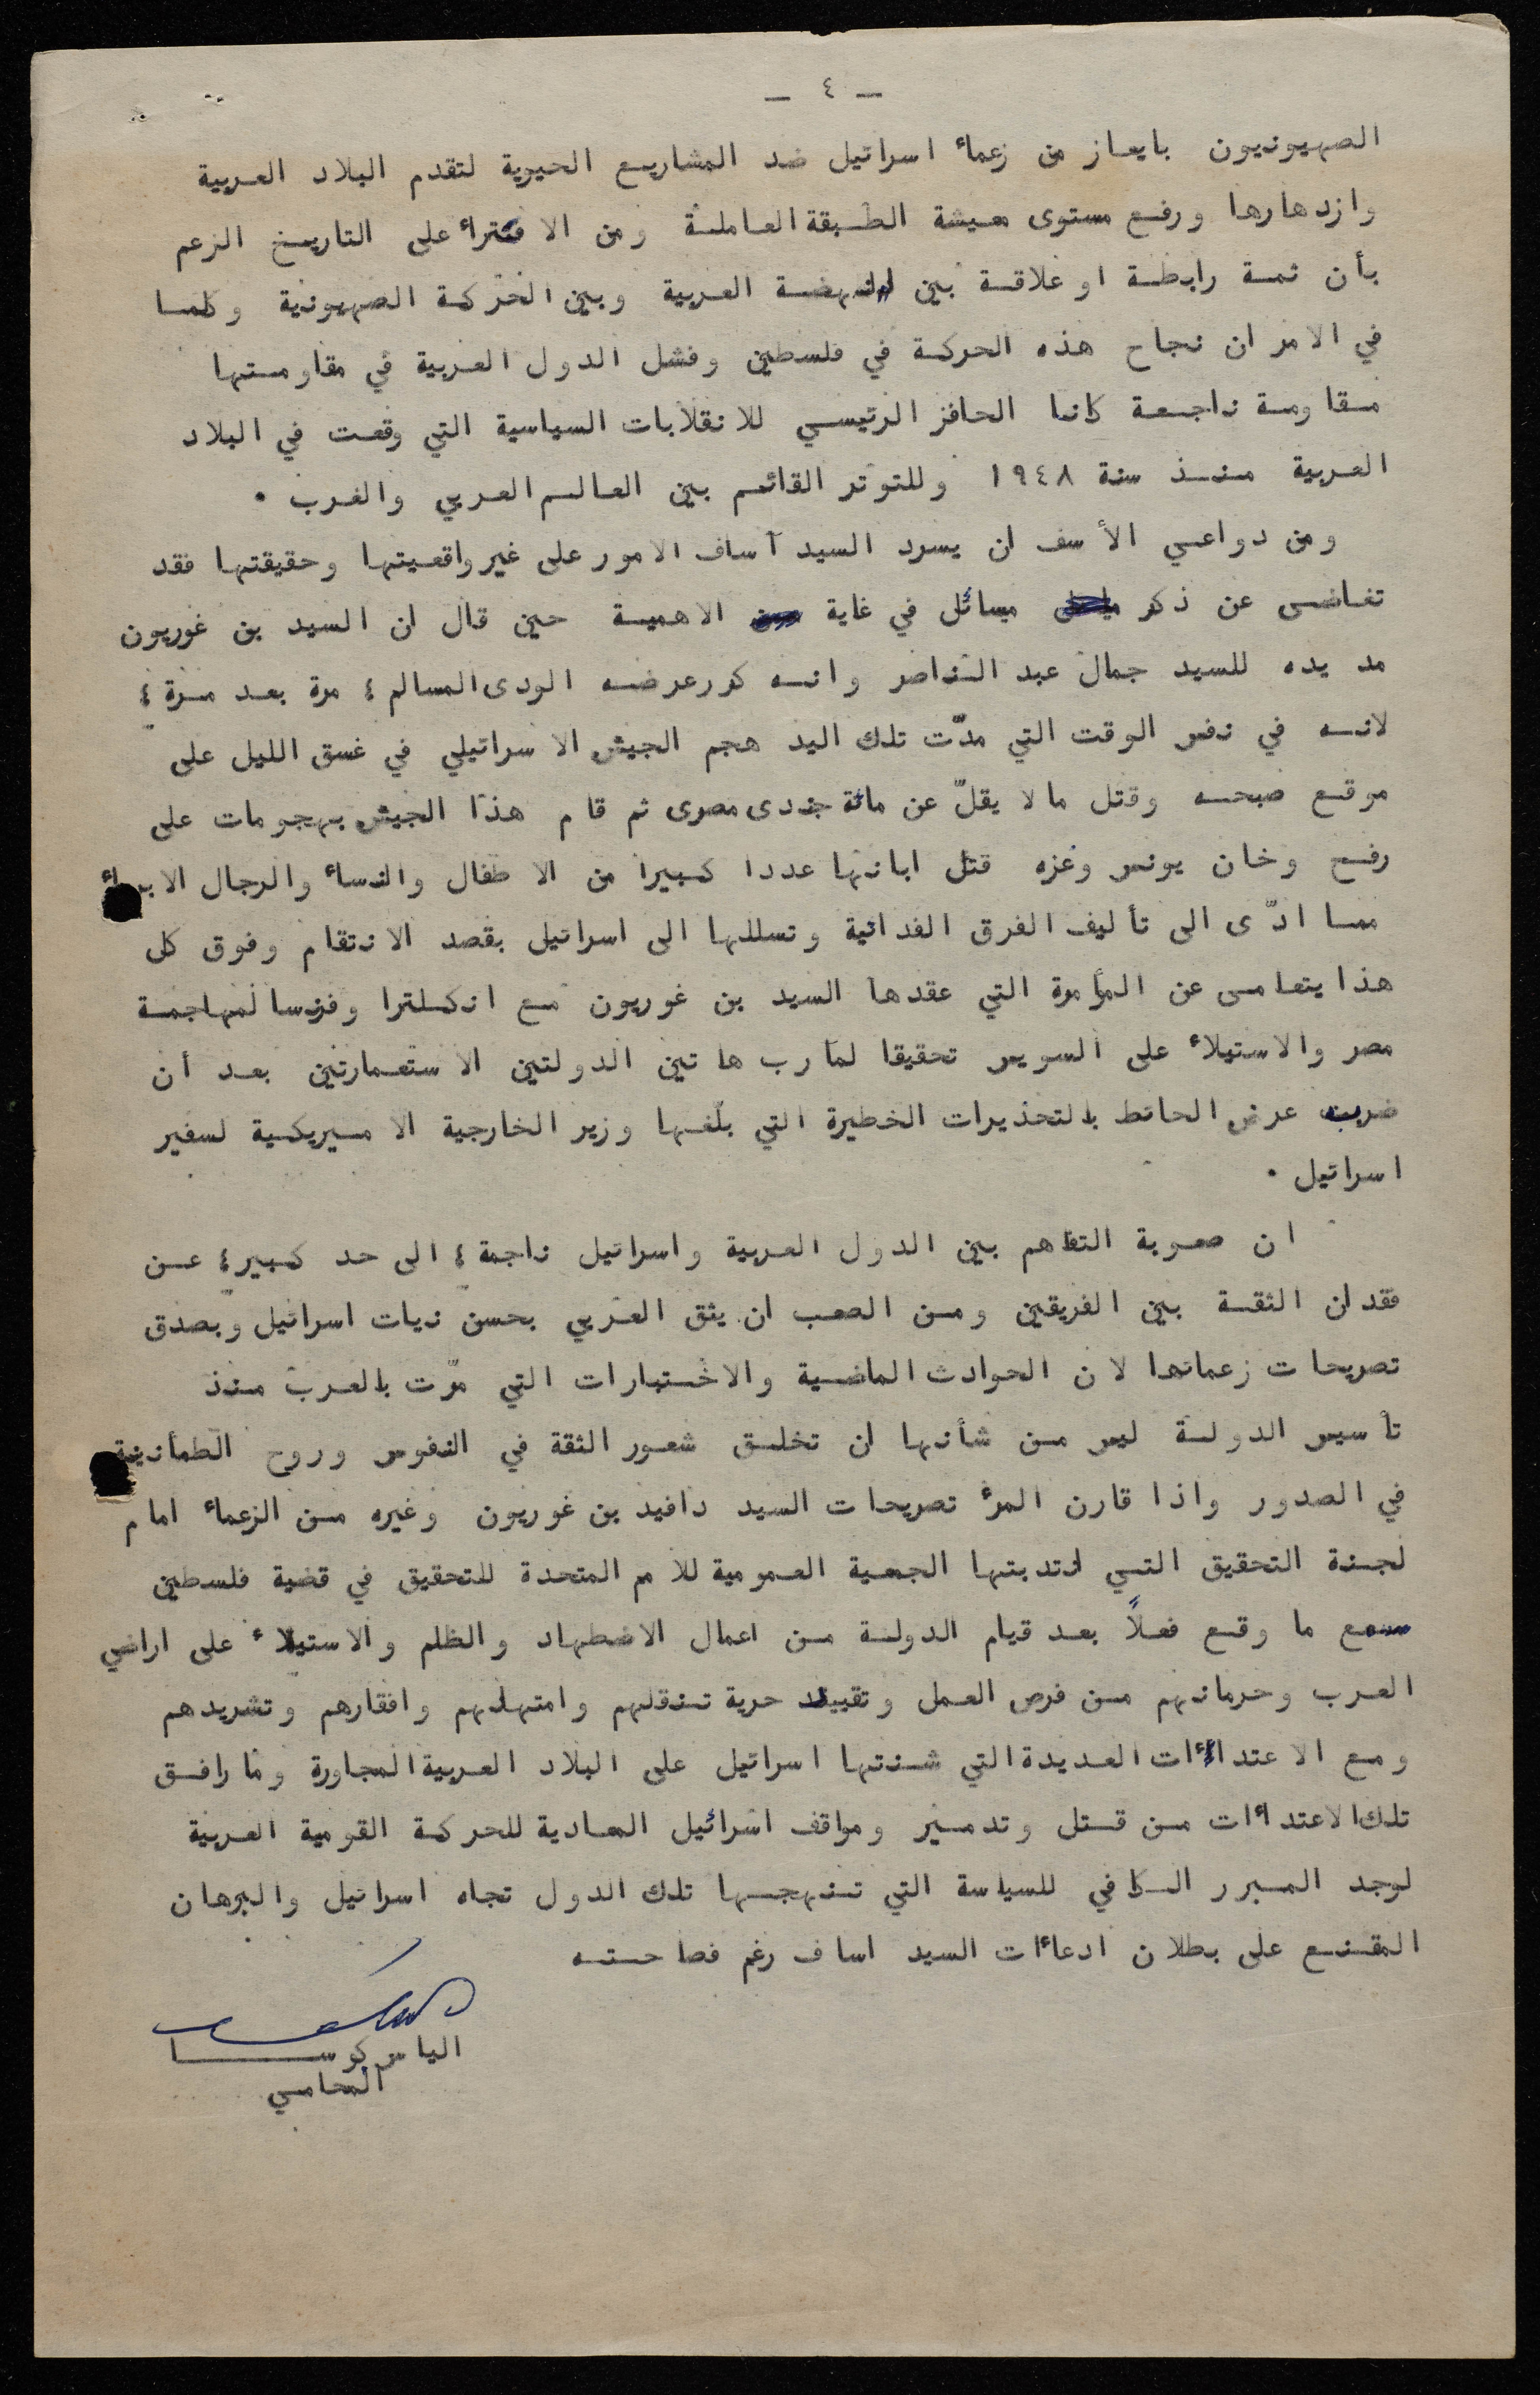 — ٤ —
الصهيونيون بايعاز من زعماء اسرائيل ضد المشاريع الحيوية لتقدم البلاد العربية
وازدهارها ورفع مستوى معيشة الطبقة العاملة ومن الافتراء على التاريخ الزعم
بأن ثمة رابطة او علاقة بين النهضة العربية وبين الحركة الصهيونية وكلما
في الامر ان نجاح هذه الحركة في فلسطين وفشل الدول العربية في مقاومتها
مقاومة ناجعة كانا الحافز الرئيسي للانقلابات السياسية التي وقعت في البلاد
العربية منذ سنة ١٩٤٨ وللتوتر القائم بين العالم العربي والغرب ٠
ومن دواعي الأسف ان يسرد السيد آساف الامور على غير واقعيتها وحقيقتها فقد
تغاضى عن ذكر مسائل في غاية الاهمية حين قال ان السيد بن غوريون
مد يده للسيد جمال عبد الناصر وانه كرر عرضه الودى المسالم ؛ مرة بعد مرة ؛
لانه في نفس الوقت التي مدّت تلك اليد هجم الجيش الاسرائيلي في غسق الليل على
موقع صبحه وقتل ما لا يقلّ عن مائة جندى مصرى ثم قام هذا الجيش بهجومات على
رفح وخان يونس وغزه قتل ابانها عددا كبيرا من الاطفال والنساء والرجال الابرياء
مما ادّى الى تأليف الفرق الفدائية وتسللها الى اسرائيل بقصد الانتقام وفوق كل
هذا يتعامى عن المؤامرة التي عقدها السيد بن غوريون مع انكلترا وفرنسا لمهاجمة
مصر والاستيلاء على السويس تحقيقا لمآرب هاتين الدولتين الاستعمارتين بعد أن
ضربت عرض الحائط بالتحذيرات الخطيرة التي بلّغها وزير الخارجية الاميريكية لسفير
اسرائيل ٠
ان صعوبة التفاهم بين الدول العربية واسرائيل ناجمة ؛ الى حد كبير ؛ عن
فقدان الثقة بين الفريقين ومن الصعب ان يثق العربي بحسن نيات اسرائيل وبصدق
تصريحات زعمائها لان الحوادث الماضية والاختبارات التي مرّت بالعرب منذ
تأسيس الدولة ليس من شأنها ان تخلق شعور الثقة في النفوس وروح الطمأنينة
في الصدور واذا قارن المرء تصريحات السيد دافيد بن غوريون وغيره من الزعماء امام
لجنة التحقيق التي انتدبتها الجمعية العمومية للامم المتحدة للتحقيق في قضية فلسطين
مع ما وقع فعلاً بعد قيام الدولة من اعمال الاضطهاد والظلم والاستيلاء على اراضي
العرب وحرمانهم من فرص العمل وتقييد حرية تنقلهم وامتهانهم وافقارهم وتشريدهم
ومع الاعتداءات العديدة التي شنتها اسرائيل على البلاد العربية المجاورة وما رافق
تلك الاعتداءات من قتل وتدمير ومواقف اسرائيل المعادية للحركة القومية العربية
لوجد المبرر الكافي للسياسة التي تنهجها تلك الدول تجاه اسرائيل والبرهان
المقنع على بطلان ادعاءات السيد اساف رغم فصاحته
الياس كوسا
المحامي